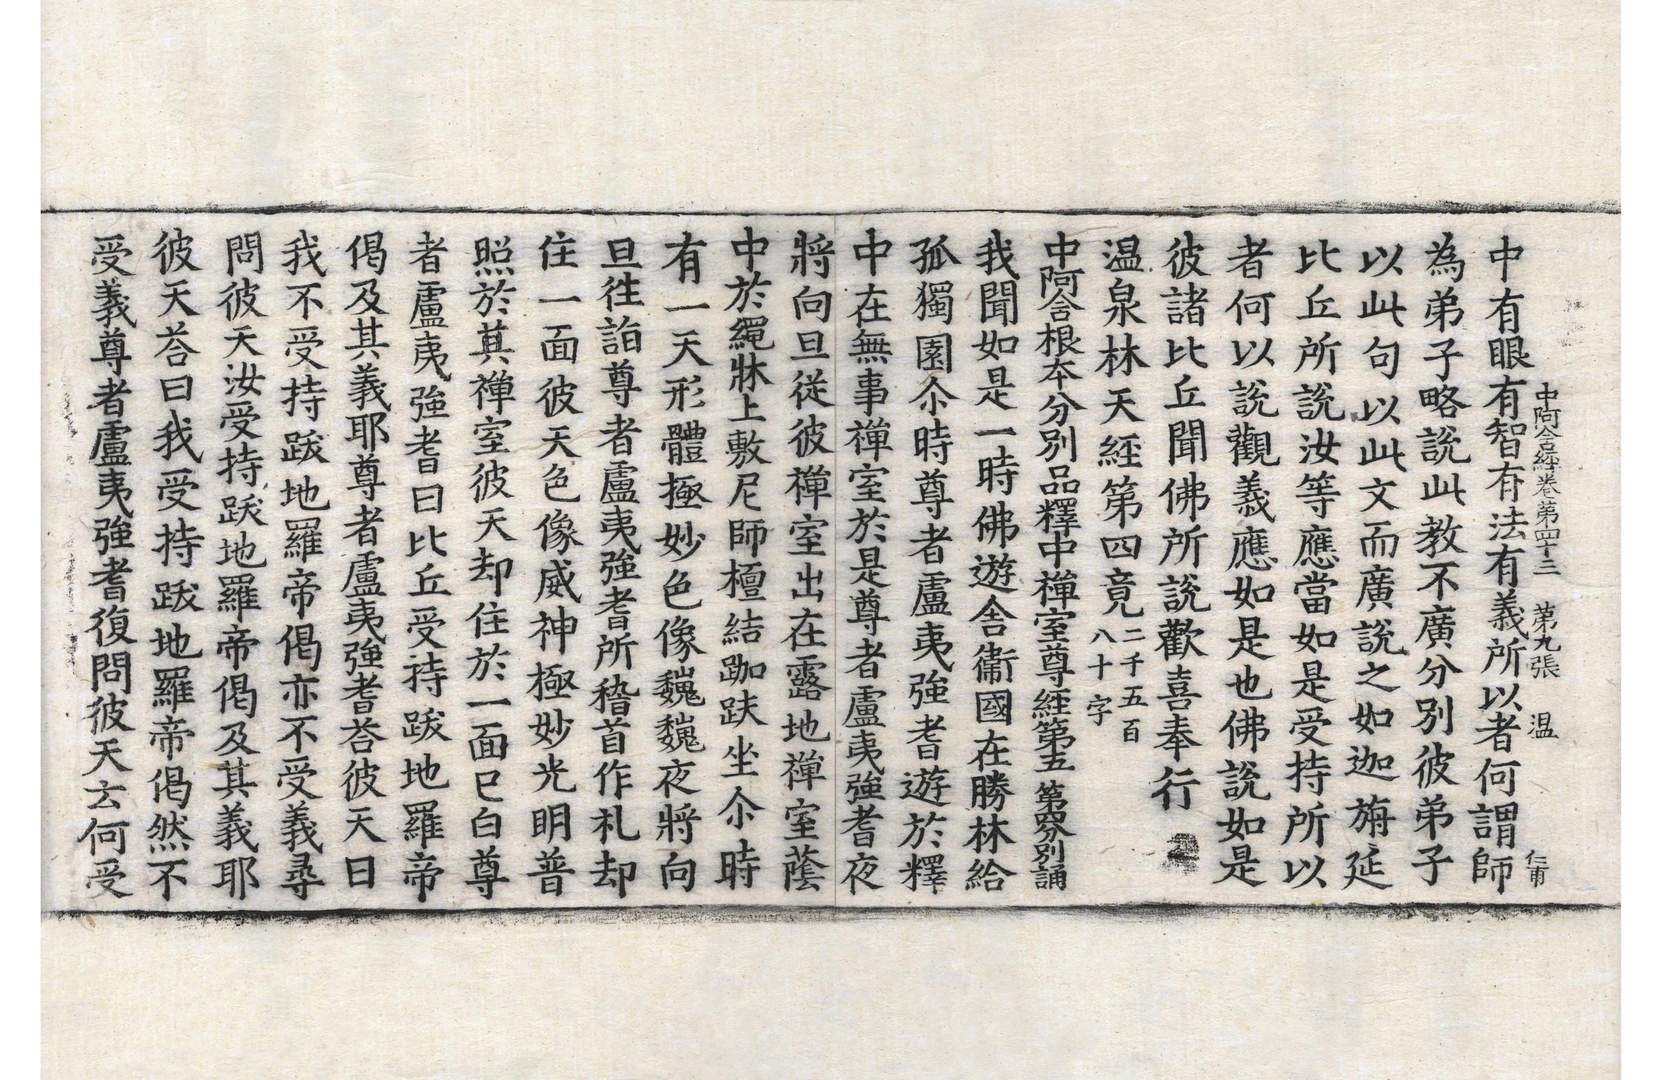 中阿含經卷第四十三 第九張 温 仁甫
中有眼有智有法有義所以者何謂師
為弟子略說此教不廣分別彼弟子
以此句以此文而廣說之如迦旃延
比丘所說汝等應當如是受持所以
者何以說觀義應如是也佛說如是
彼諸比丘聞佛所說歡喜奉行
温泉林天經第四竟二千五百八十字
中阿含根本分別品釋中禪室尊經第五第四分別誦
我聞如是一時佛遊舍衞國在勝林給
孤獨園尒時尊者盧夷強耆遊於釋
中在無事禪室於是尊者盧夷強耆夜
將向旦從彼禪室出在露地禪室蔭
中於繩牀上敷尼師檀結跏趺坐尒時
有一天形體極妙色像巍巍夜將向
旦往詣尊者盧夷強耆所稽首作礼却
住一面彼天色像威神極妙光明普
照於其禪室彼天却住於一面已白尊
者盧夷強耆曰比丘受持跋地羅帝
偈及其義耶尊者盧夷強耆荅彼天曰
我不受持跋地羅帝偈亦不受義尋
問彼天汝受持跋地羅帝偈及其義耶
彼天荅曰我受持跋地羅帝偈然不
受義尊者盧夷強耆復問彼天云何受